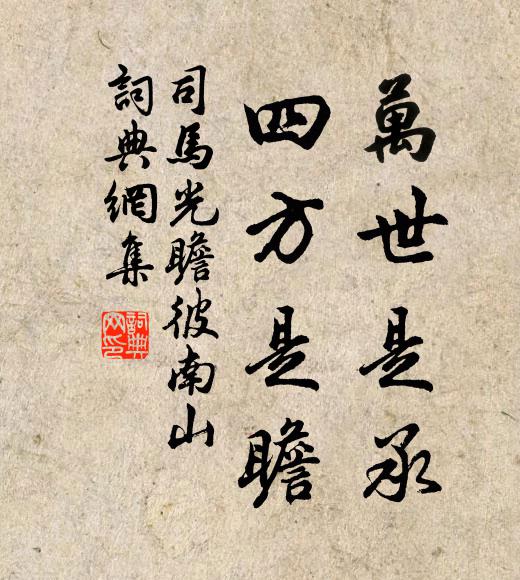 萬世是承
四方是瞻
司馬光瞻彼南山
詞典網集
詞典
网印